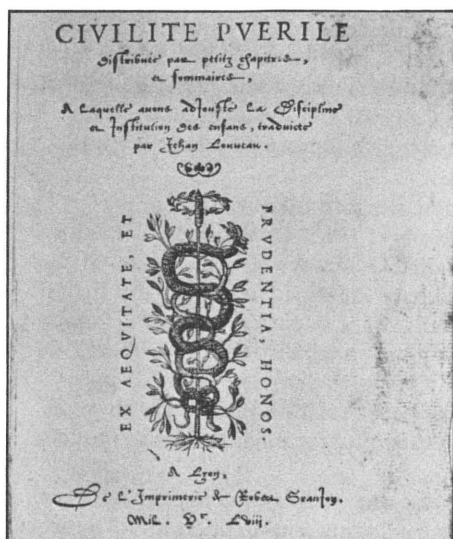 CIVILITE PVERILE
distribuée par petitz chapitres,
et sommaires,
A Laquelle avons adjousté La Discipline
et Institution des enfans, traduicte
par Jehan Louueau.
EX AEQVITATE, ET
PRVDENTIA, HONOS.
A Lyon,
De L'Imprimerie de Robert Granjon.
Mil. Vc. Lviii.